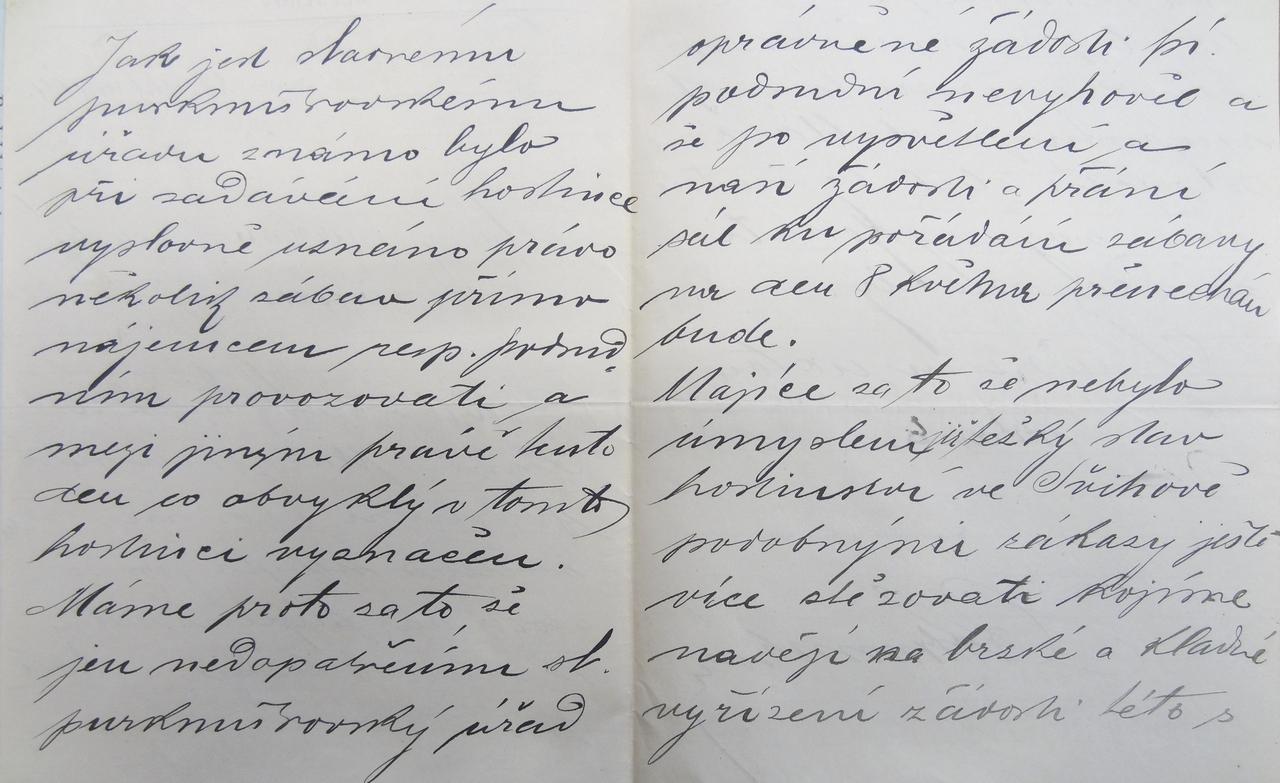 Jak jest slavnému
purkmistrovskému
úřadu známo bylo
při zadávání hostince
výslovně uznáno právo
několik zábav přímo
nájemcem resp. podnád
ním provozovati a
mezi jiným právě tento
den co obvyklý v tomto
hostinci vyznačen.
Máme proto za to že
jen nedopatřením sl.
purkmistrovský úřad
oprávněné žádosti pí.
podruhní nevyhověl a
že po vysvětlení a
naší žádosti a přání
sál ku pořádání zábavy
na den 8 května přenechán
bude.
Majíce za to že nebylo
úmyslem již těžký stav
hostinství ve Švihově
podobnými zákazy ještě
více stěžovati kojíme
naději na brzké a kladné
vyřízení žádosti této s